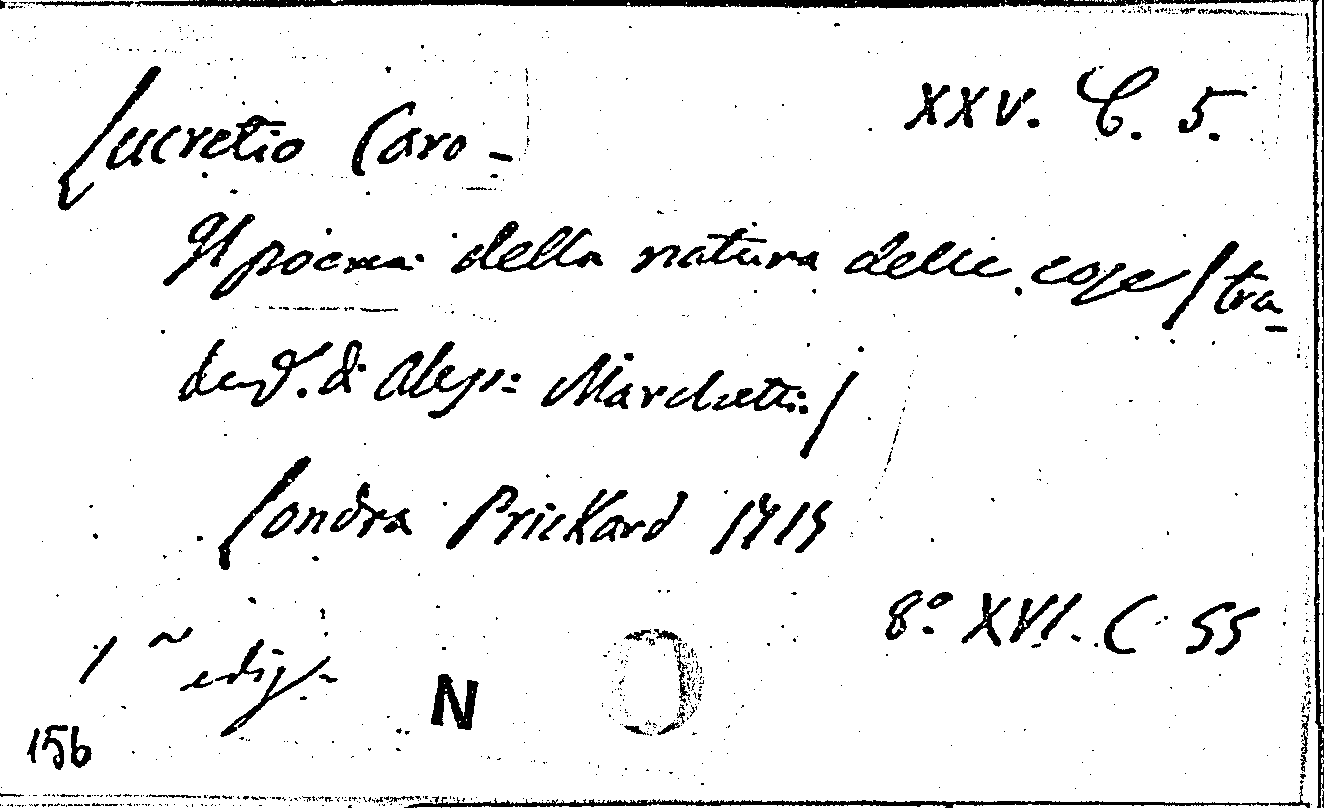 Lucretio Caro - XXV. C. 5.
Il poema della natura delle cose / tra-
duz. di Aless: Marchetti /
Londra Prickard 1717
8º XVI. C 55
1ª ediz.
N
156